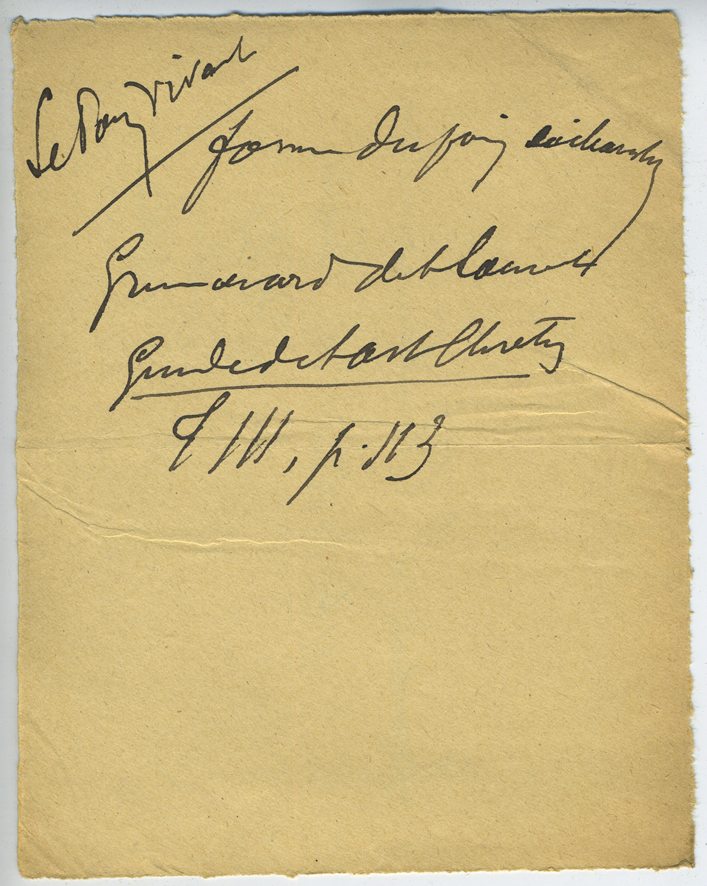 Le Pain vivant
forme du pain eucharistiq
Grimouard de St Laurent
Guide de l'art Chrétien
T III, p. 113